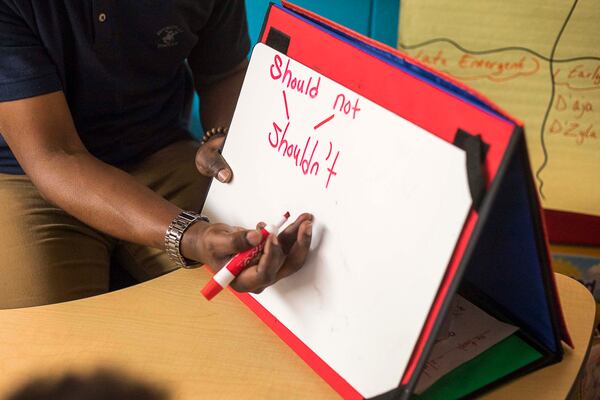 Should not
Shouldn't
Late Emergent
Early
D'aja
D'Zyla